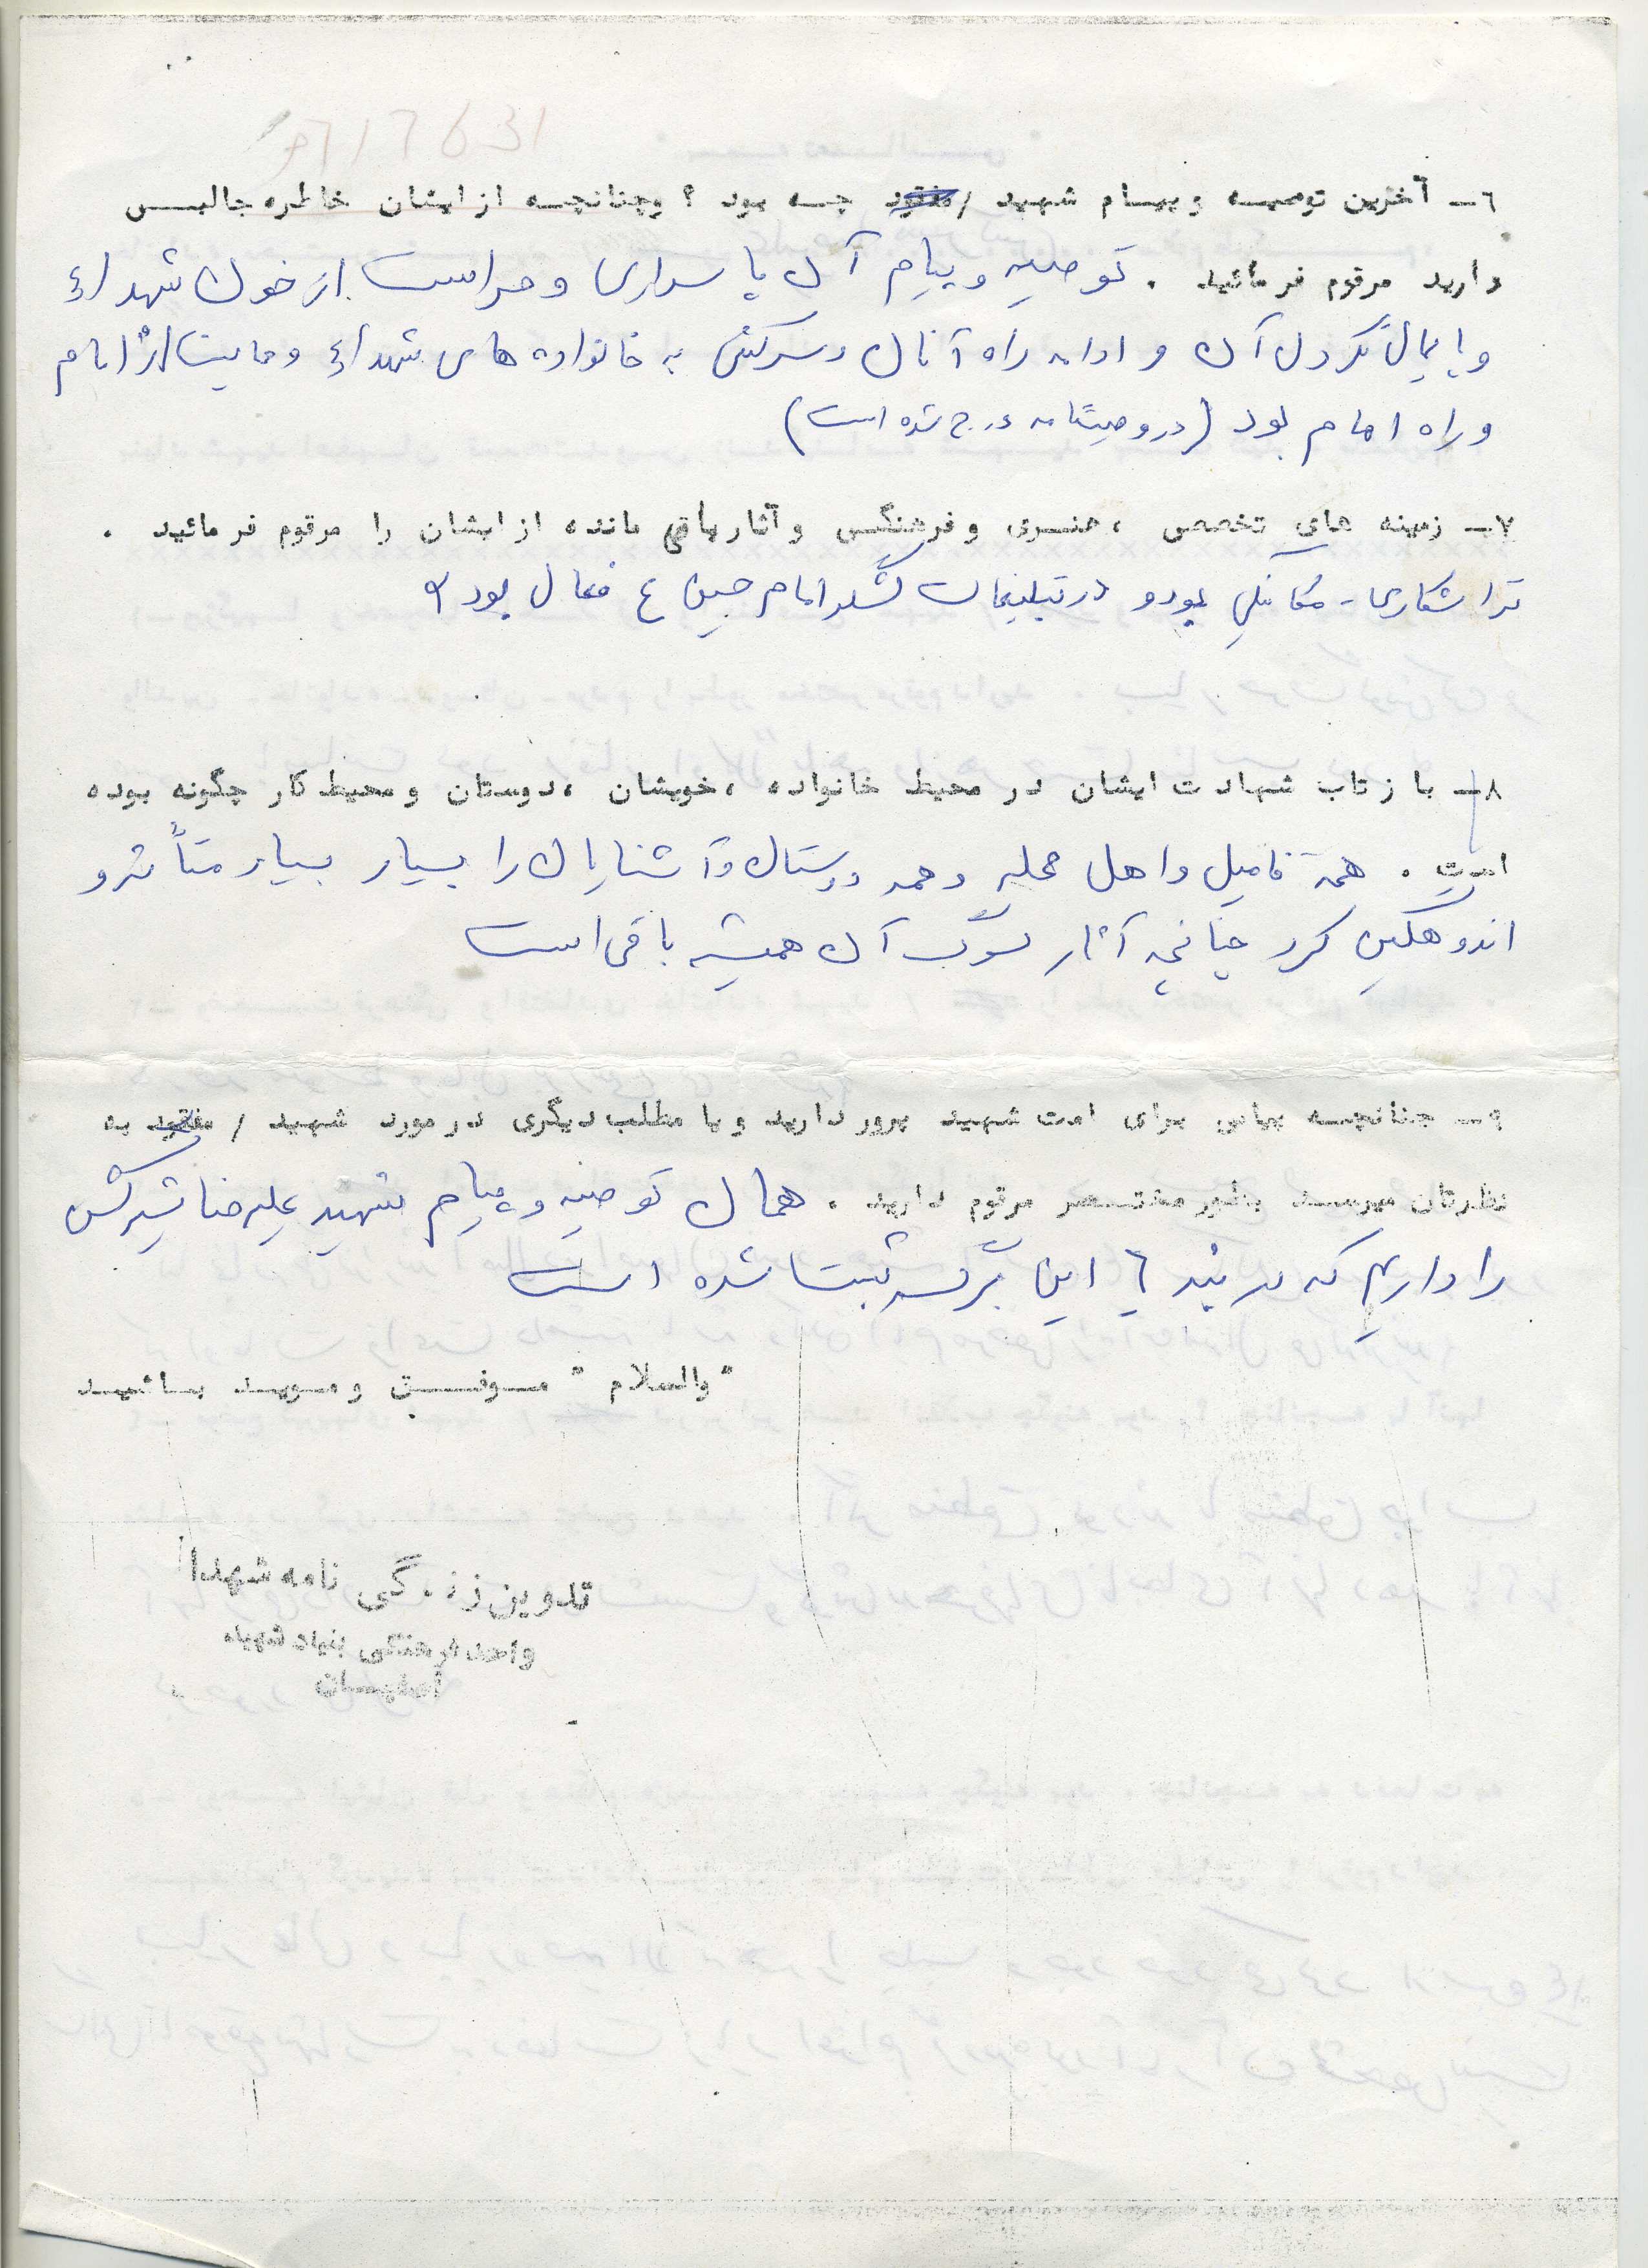 ۶- آخرین توصیه و پیام شهید / مفقود چه بود ؟ وچنانچه از ایشان خاطره جالبی
دارید مرقوم فرمائید . توصیه و پیام آن پاسداری و حراست از خون شهداء
و پایمال نکردن آن و ادامه راه آنان و سرکشی به خانواده های شهداء و حمایت از امام
و راه امام بود (در وصیتنامه درج شده است)
۷- زمینه های تخصصی ، هنری و فرهنگی و آثار باقی مانده از ایشان را مرقوم فرمائید .
تراشکاری - مکانیکی بود و در تبلیغات لشگر امام حسین ع فعال بود
۸- بازتاب شهادت ایشان در محیط خانواده ، خویشان ، دوستان و محیط کار چگونه بوده
است . همه فامیل و اهل محله و همه دوستان و آشنایان را بسیار بسیار متأثر و
اندوهگین کرد چنانچه آثار سوگ آن همیشه باقی است
۹- چنانچه پیامی برای امت شهید پرور دارید و یا مطلب دیگری در مورد شهید / مفقود به
نظرتان میرسد بطور مختصر مرقوم دارید . همان توصیه و پیام شهید علیرضا شیرکش
را داریم که در بند ۶ این برگه ثبت شده است
" والسلام " موفق و موید باشید
تدوین زندگی نامه شهدا
واحد فرهنگی بنیاد شهید
اصفهان